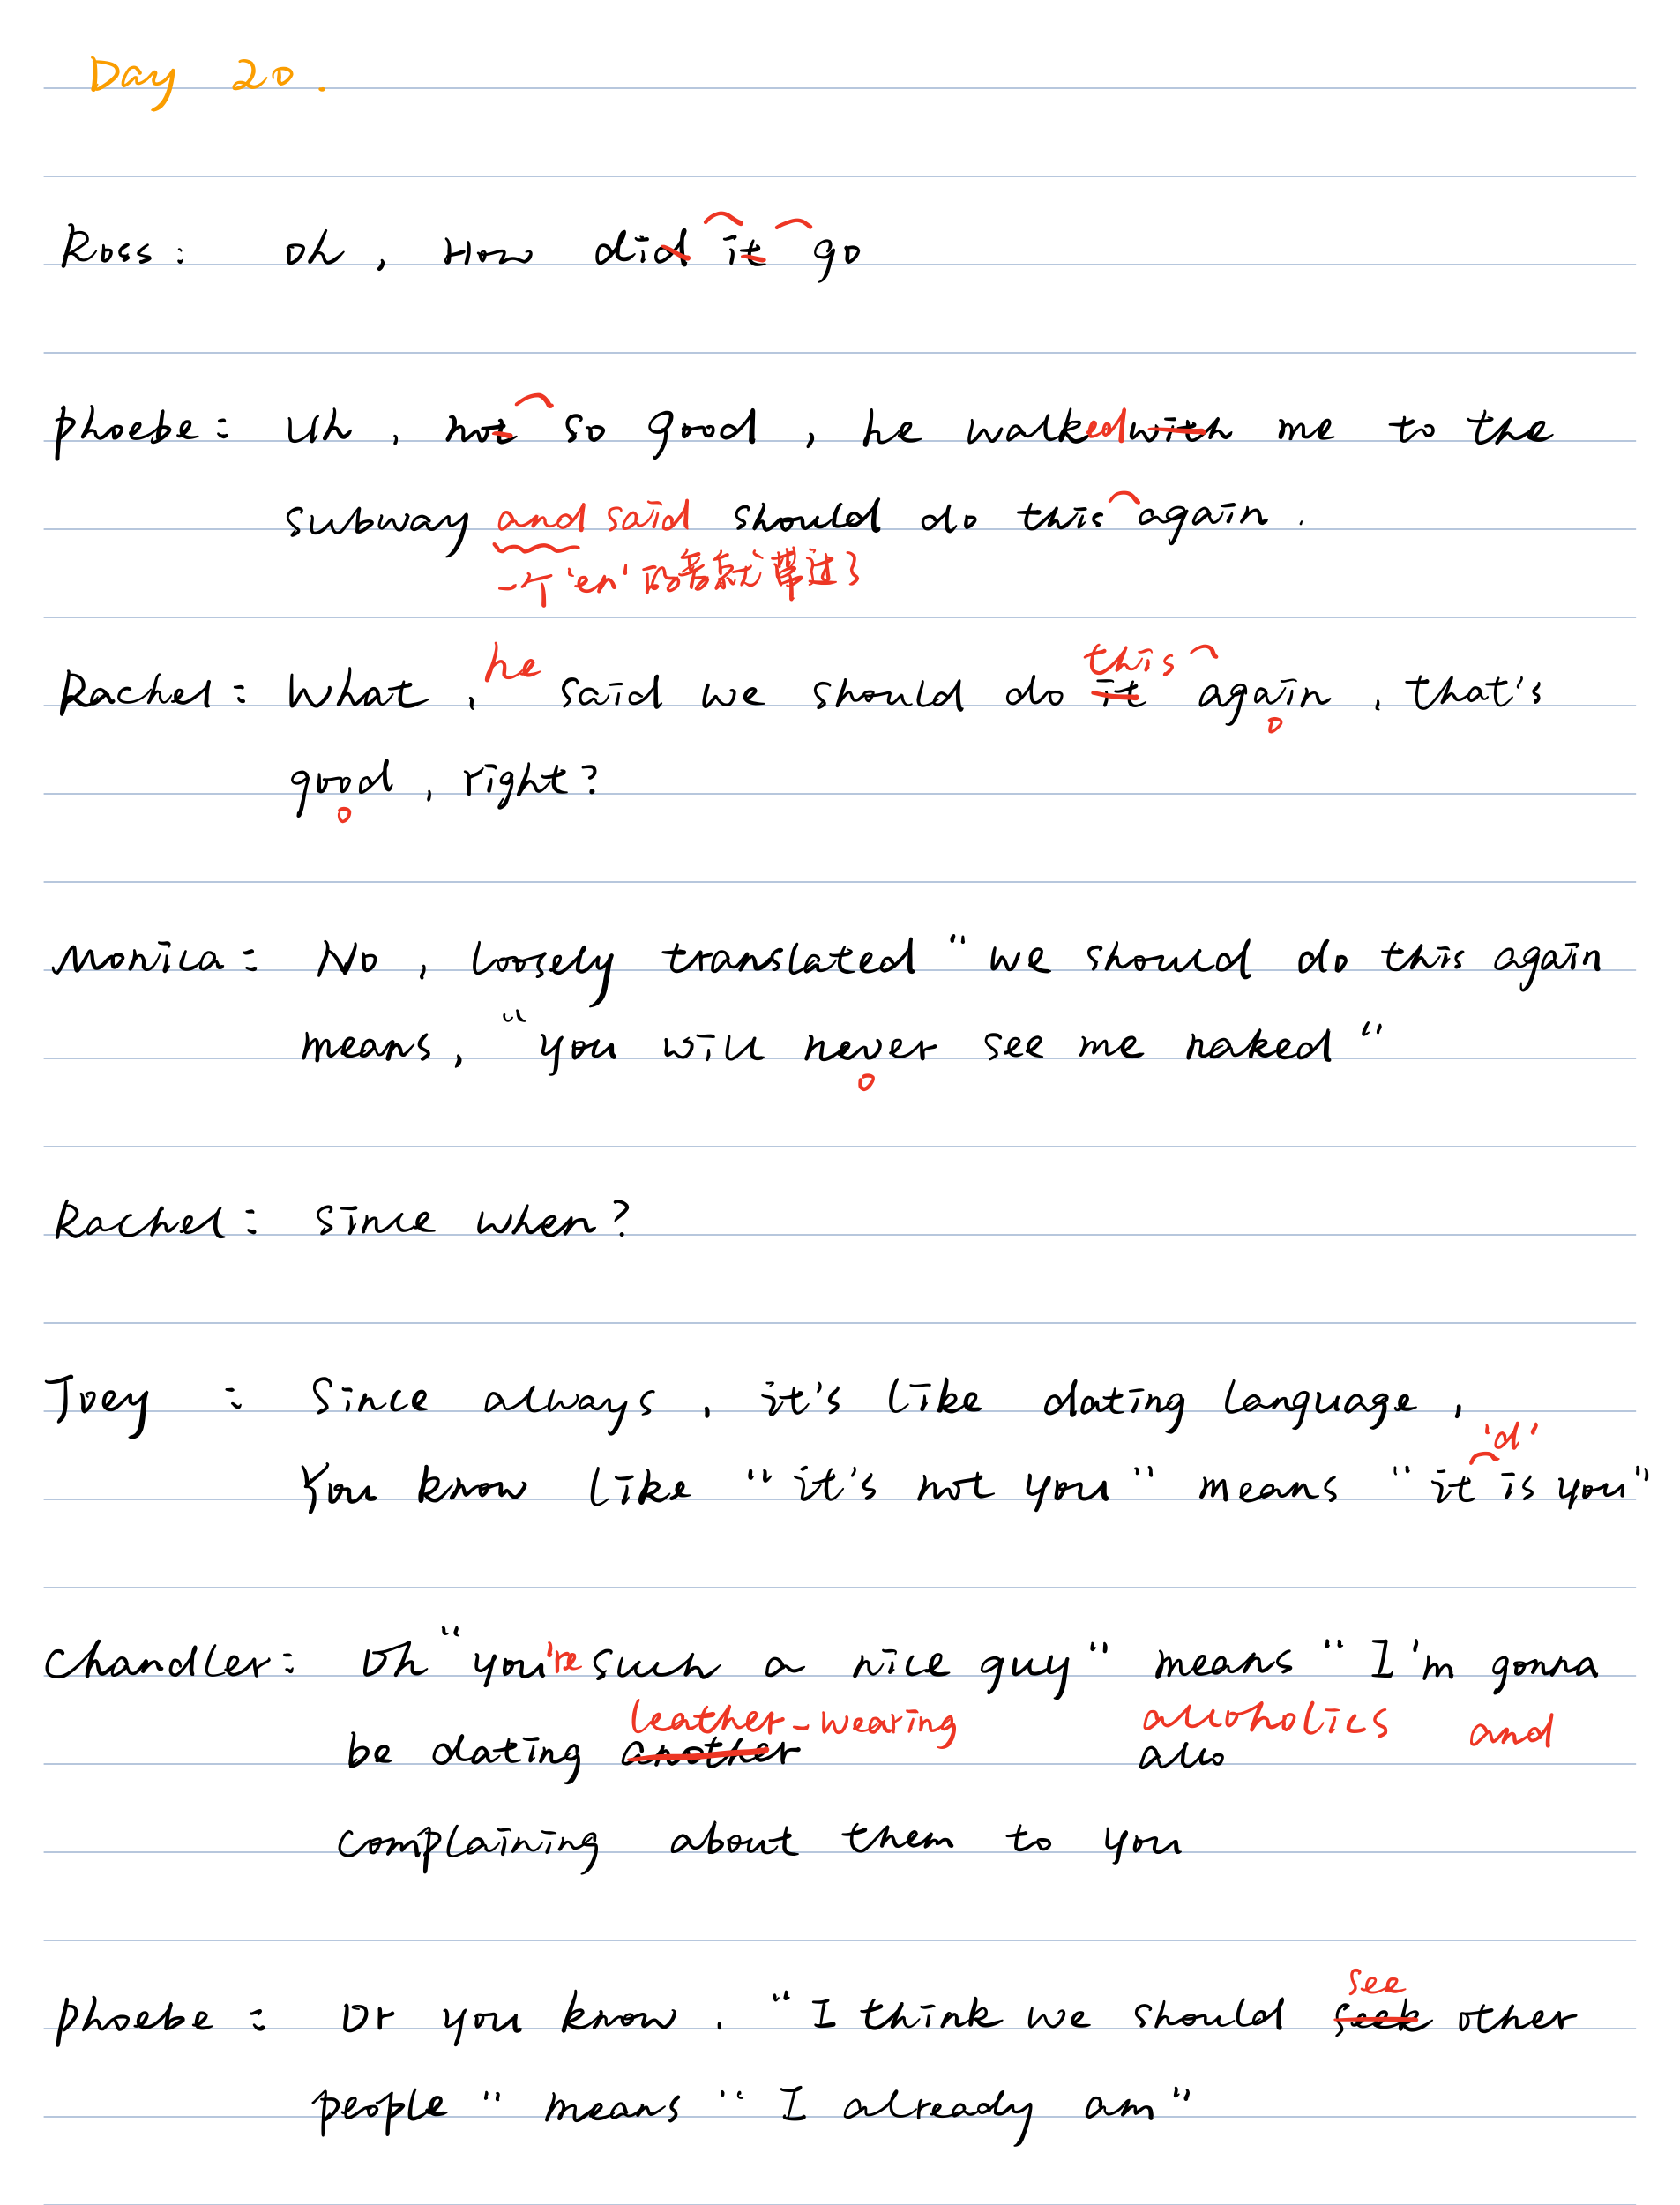 Day 20.
Ross: Oh, How did it go
Phoebe: Uh, not so good, he walked with me to the
subway and said should do this again.
一个'en'的音就带过了
he this
Rachel: What, said we should do it again, that's
good, right?
Monica: No, loosely translated "we should do this again
means, "you will never see me naked"
Rachel: Since when?
Joey: Since always, it's like dating language,
'd'
You know like "it's not you" means "it is you"
Chandler: Oh "you're such a nice guy" means "I'm gonna
leather-wearing alcoholics and
be dating another alco
complaining about them to you
see
Phoebe: Or you know, "I think we should seek other
people" means "I already am"